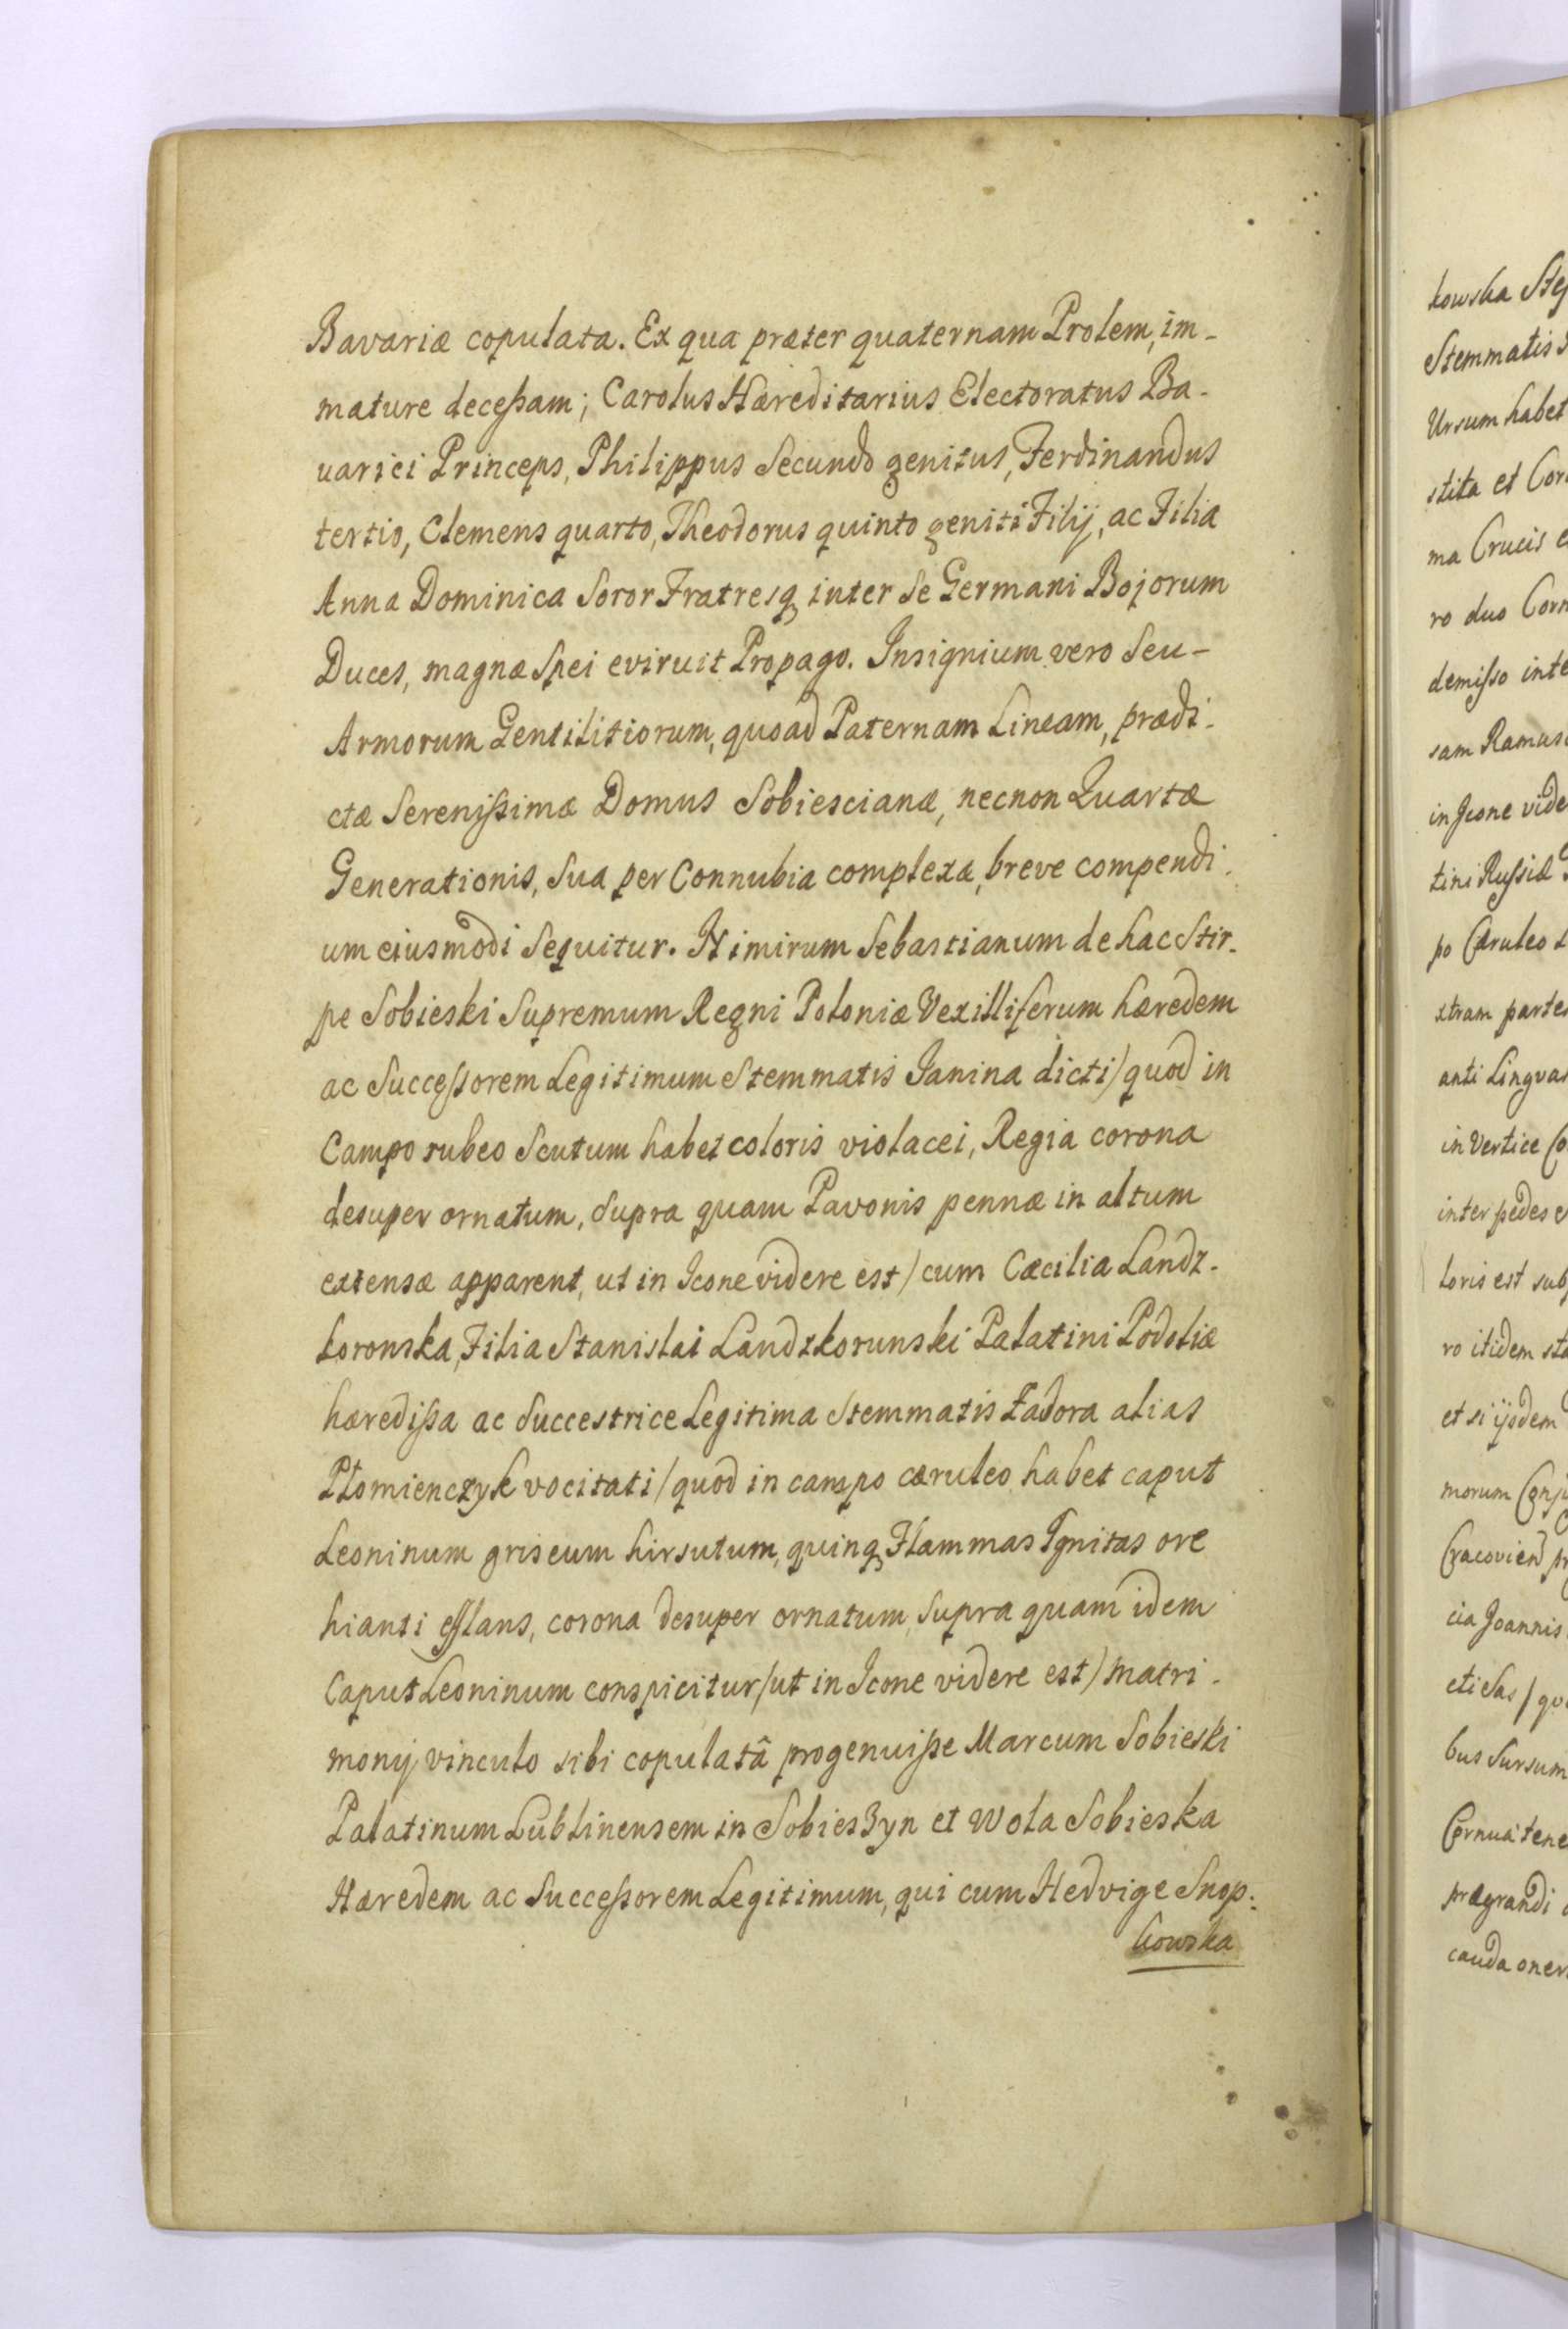 Bavariæ copulata. Ex qua præter quaternam Prolem, im-
mature deceßam; Carolus Hæreditarius Electoratus Ba-
uarici Princeps, Philippus Secundo genitus, Ferdinandus
tertio, Clemens quarto, Theodorus quinto geniti Filij, ac Filia
Anna Dominica Soror Fratresq inter se Germani Bojorum
Duces, magnæ Spei eviruit Propago. Insignium vero seu-
Armorum Gentilitiorum, quoad Paternam Lineam, prædi-
ctæ Serenißimæ Domus Sobiescianæ, necnon Quartæ
Generationis, Sua per Connubia complexæ, breve compendi-
um eiusmodi Sequitur. Nimirum Sebastianum de hac Stir-
pe Sobieski Supremum Regni Poloniæ Vexilliferum hæredem
ac Successorem Legitimum Stemmatis Janina dicti/quod in
Campo rubeo Scutum habet coloris violacei, Regia corona
desuper ornatum, supra quam Pavonis pennæ in altum
extensæ apparent, ut in Icone videre est/cum Cæcilia Landz-
koronska, Filia Stanislai Landzkorunski Palatini Podoliæ
hæredißa ac Succestrice Legitima Stemmatis Zadora alias
Płomienczyk vocitati/quod in campo cæruleo habet caput
Leoninum griseum hirsutum, quinq Flammas Ignitas ore
hianti efflans, corona desuper ornatum, supra quam idem
Caput Leoninum conspicitur/ut in Icone videre est/matri-
monij vinculo sibi copulatâ progenuiße Marcum Sobieski
Palatinum Lublinensem in Sobieszyn et Wola Sobieska
Hæredem ac Succeßorem Legitimum, qui cum Hedvige Snop-
kowska
kowska
Stemmatis
Ursum habet
stita et
ma Crucis
ro duo
demisso
sam
in Icone
tini Russiæ
po Cæruleo
xtram
anti
in Vertice
inter pedes
loris est
ro itidem
et si ijsdem
morum
cia Joannis
bus Sursum
Cornua
prægrandi
cauda